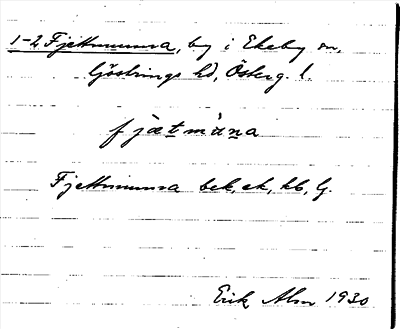 1-2 Fjettmunna, by i Ekeby sn,
Göstrings hd, Österg. l.
fjætmùna
Fjettmunna bek, ek, kb, G.
Erik Alm 1930